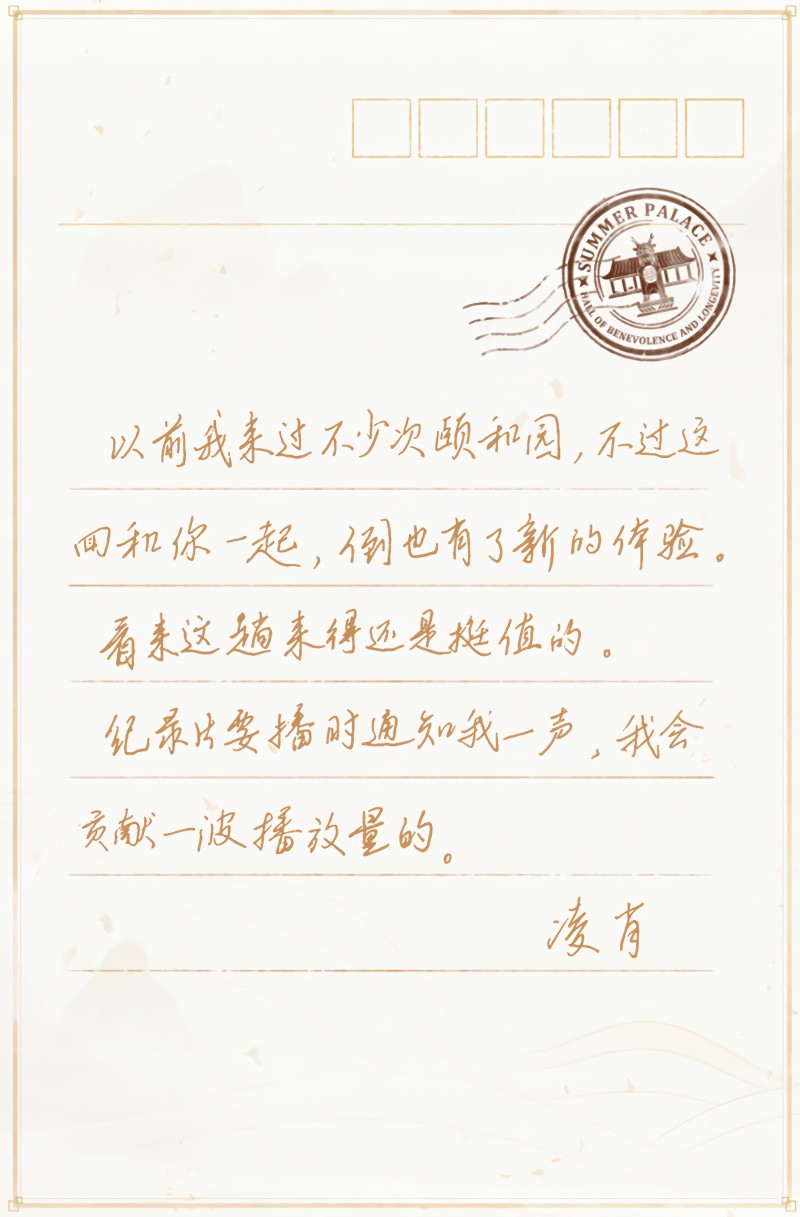 SUMMER PALACE
HALL OF BENEVOLENCE AND LONGEVITY
以前我来过不少次颐和园，不过这
回和你一起，倒也有了新的体验。
看来这趟来得还是挺值的。
纪录片要播时通知我一声，我会
贡献一波播放量的。
凌肖